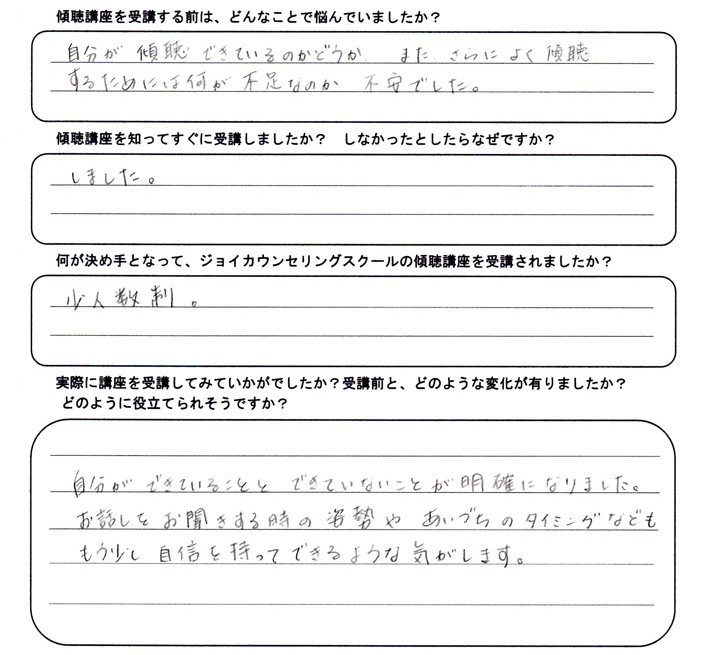 傾聴講座を受講する前は、どんなことで悩んでいましたか？
自分が 傾聴 できているのかどうか、また、さらに よく 傾聴
するためには何が 不足なのか 不安でした。
傾聴講座を知ってすぐに受講しましたか？　しなかったとしたらなぜですか？
しました。
何が決め手となって、ジョイカウンセリングスクールの傾聴講座を受講されましたか？
少人数制。
実際に講座を受講してみていかがでしたか？受講前と、どのような変化が有りましたか？
どのように役立てられそうですか？
自分が できていることと できていないことが 明確になりました。
お話しを お聞きする時の 姿勢や あいづちの タイミングなども
もう少し 自信を持ってできるような気がします。